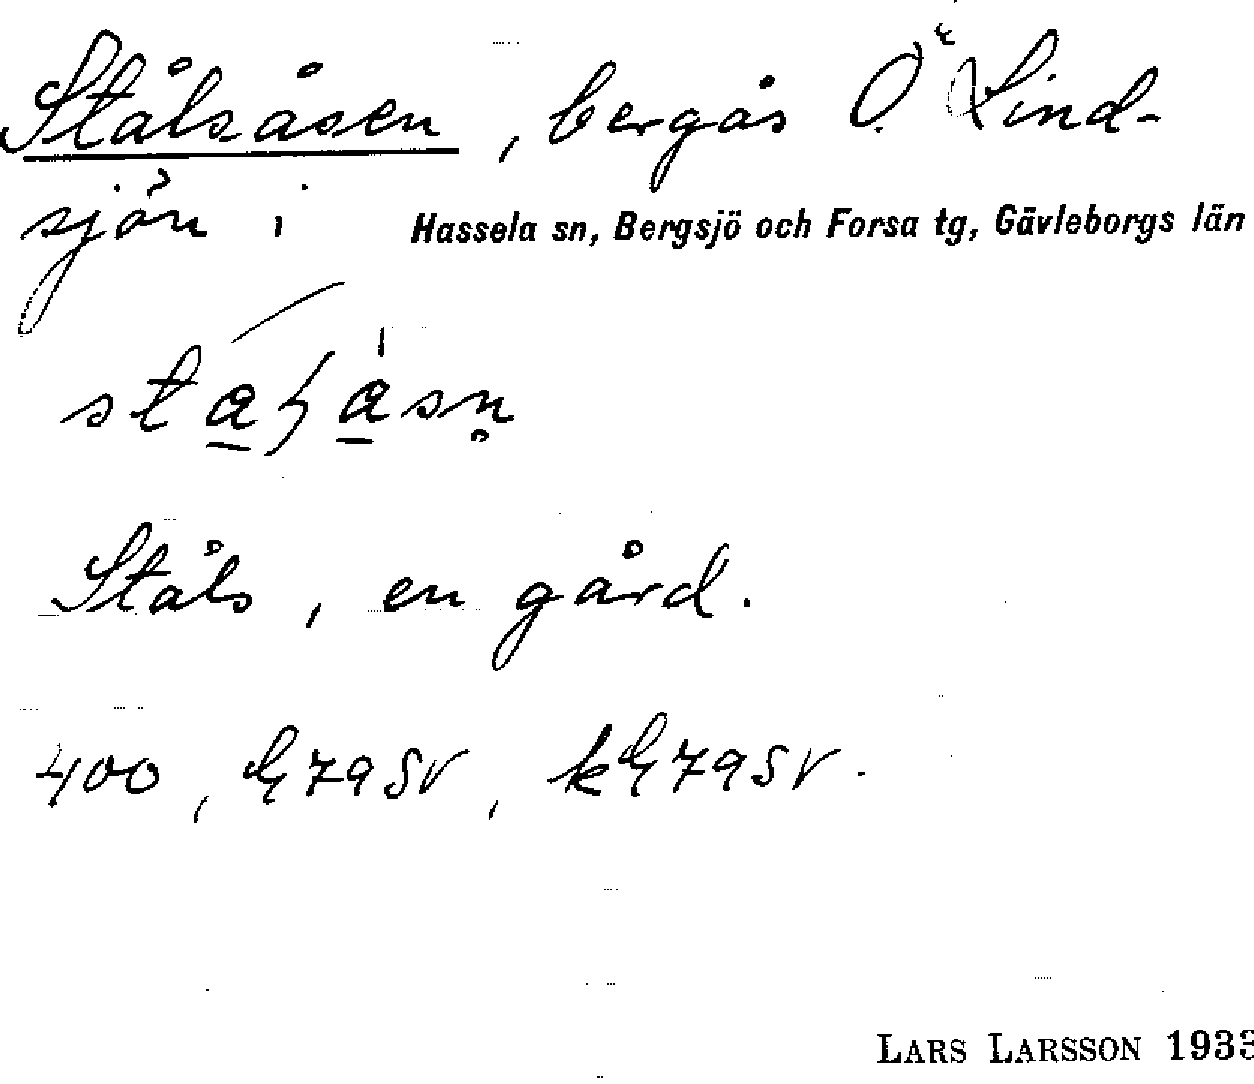 Stålsåsen, bergås Ö. Lind-
sjön i Hassela sn, Bergsjö och Forsa tg, Gävleborgs län
Ståls, en gård.
400, G79SV, kG79SV.
LARS LARSSON 1933